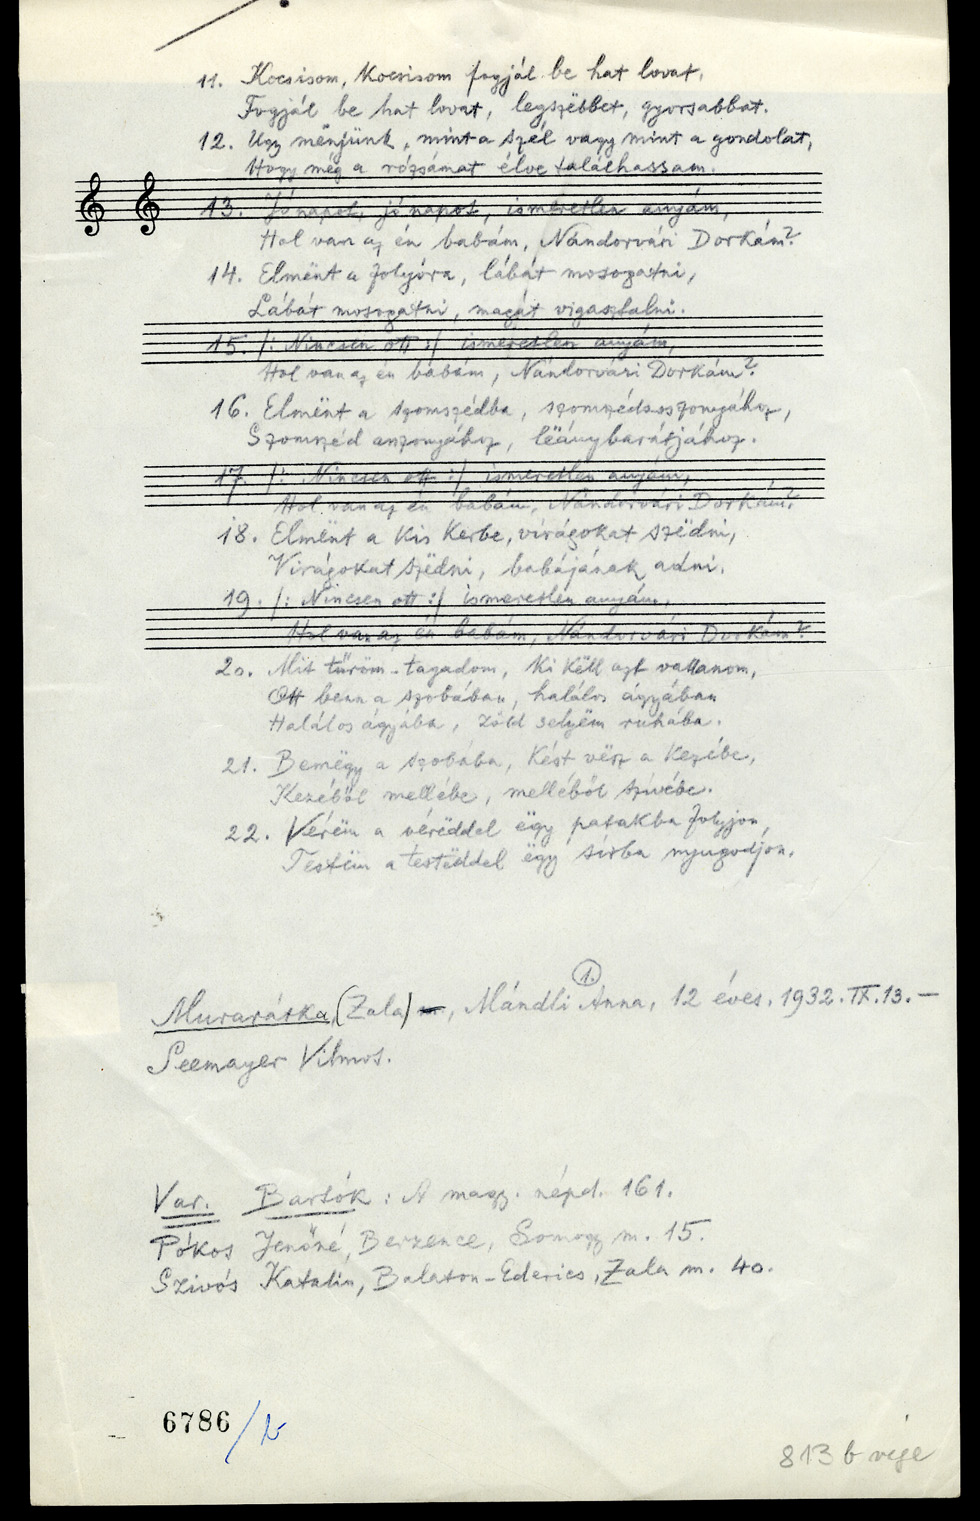 11. Kocsisom, Kocsisom fogjál be hat lovat,
Fogjál be hat lovat, legszëbbet, gyorsabbat.
12. Ugy mënjünk, mint a szél vagy mint a gondolat,
Hogy még a rózsámat élve találhassam.
13. Jónapot, jó napot, ismeretlen anyám,
Hol van az én babám, Nándorvári Dorkám?
14. Elmënt a folyóra, lábát mosogatni,
Lábát mosogatni, magát vigasztalni.
15. /: Nincsen ott :/ ismeretlen anyám,
Hol van az én babám, Nándorvári Dorkám?
16. Elmënt a szomszédba, szomszédasszonyához,
Szomszéd asszonyához, lëánybarátjához.
17. /: Nincsen ott :/ ismeretlen anyám,
Hol van az én babám, Nándorvári Dorkám?
18. Elmënt a Kis Kerbe, virágokat szëdni,
Virágokat szëdni, babájának adni.
19. /: Nincsen ott :/ ismeretlen anyám,
Hol van az én babám, Nándorvári Dorkám?
20. Mit tűröm-tagadom, Ki Këll azt vallanom,
Ott benn a szobában, halálos ágyában
Halálos ágyába, zöld selyëm ruhába.
21. Bemëgy a szobába, Kést vësz a Kezébe,
Kezéből mellébe, melléből szívébe.
22. Vérëm a vérëddel ëgy patakba folyjon,
Testëm a testëddel ëgy sírba nyugodjon.
1.
Murarátka, (Zala), Mándli Anna, 12 éves, 1932. IX. 13. –
Seemayer Vilmos.
Var. Bartók: A magy. népd. 161.
Pókos Jenőné, Berzence, Somogy m. 15.
Szivós Katalin, Balaton-Ederics, Zala m. 40.
6786/b
813 b vége